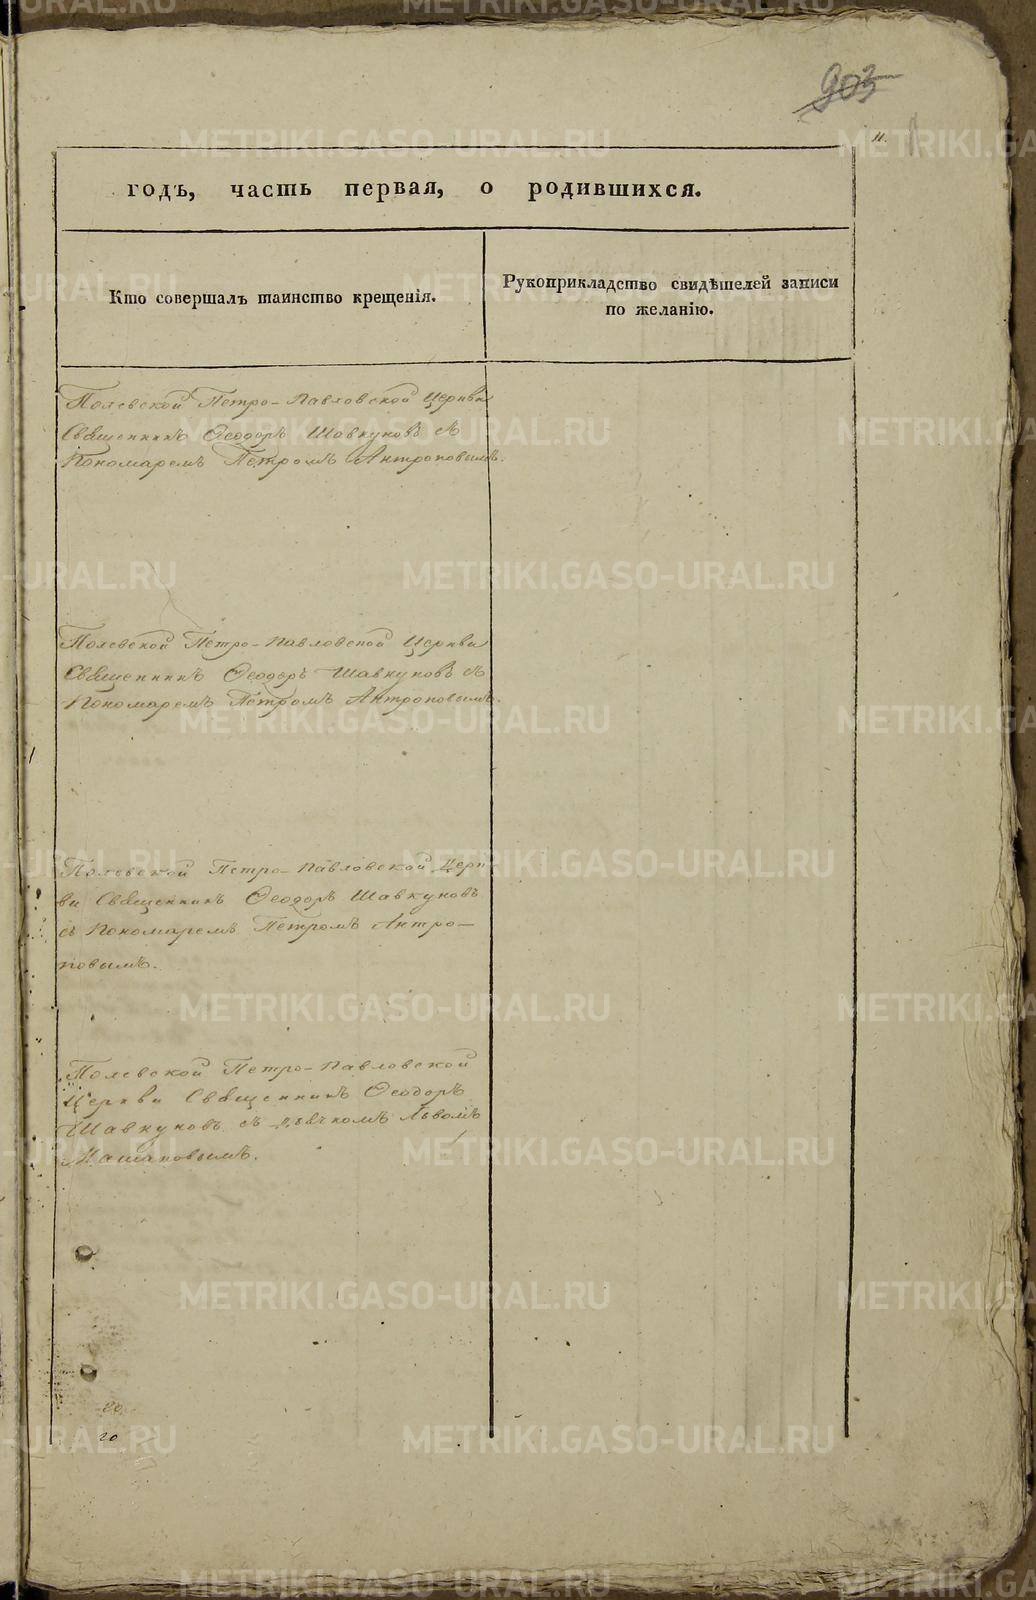 903
11.
годъ, часть первая, о родившихся.
Кто совершалъ таинство крещенія.
Рукоприкладство свидѣтелей записи
по желанію.
Полевской Петро-Павловской Церкви
Священникъ Ѳеодоръ Шавкуновъ съ
Пономаремъ Петромъ Антроповымъ.
Полевской Петро-Павловской Церкви
Священникъ Ѳеодоръ Шавкуновъ съ
Пономаремъ Петромъ Антроповымъ.
Полевской Петро-Павловской Церк
ви Священникъ Ѳеодоръ Шавкуновъ
съ Пономаремъ Петромъ Антро-
повымъ.
Полевской Петро-Павловской
Церкви Священникъ Ѳеодоръ
Шавкуновъ съ Дьячкомъ Львомъ
20
20
METRIKI.GASO-URAL.RU